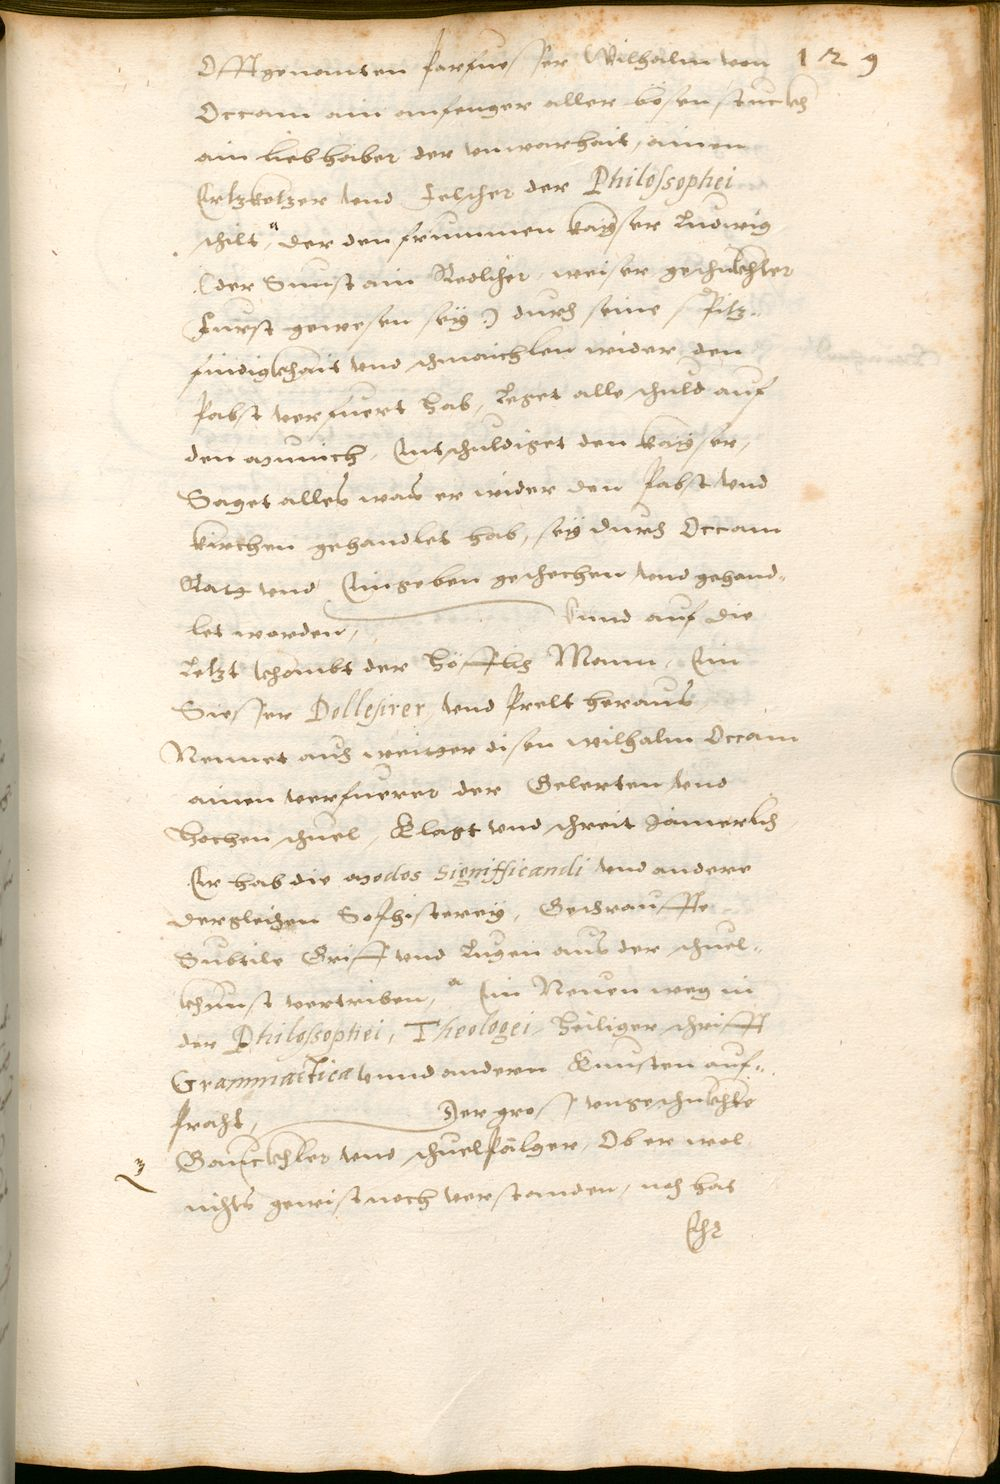 Offtgenanten Parfuesser Wilhalm von 129
Occam ain anfenger aller bösen stuckh
ain liebhaber der unwarhait, ainen
Ertzketzer und Felscher der Philossophei
schilt, der den frummen Kayser Ludwig
(der Sunst ain Redlicher weiser geschickhter
Furst gewesen sey) durch seine spitz=
findigkhait und schmaichlen wider den
Pabst verfuert hab, Leget alle schuld auf
den munich, Entschuldiget den Kayser,
Saget alles was er wider den Pabst und
Kirchen gehandlet hab, sey durch Occam
Ratt und Eingeben geschechen und gehand=
let worden, Unnd auf die
Letzt khombt der höfflich Mann, Ein
Siesser Dollesirer, und Prelt heraus
Nennet auch weitter disen wilhalm Occam
ainen verfuerer der Gelerten und
hochen schuel, Klagt und schreit Jamerlich
Er hab die modos significandi und andere
dergleichen Sophisterey,
Subtile Griff und Lugen aus der schuel=
khunst vertriben, Ein Neuen weg in
der Philossophei, Theologei, heiliger schrifft
Grammactica unnd andern Kunsten auf=
pracht, Der gross ungeschickhte
Gauckhler und schuelpalger, Ob er wol
nichts gewist noch verstanden, noch hat
Ehr